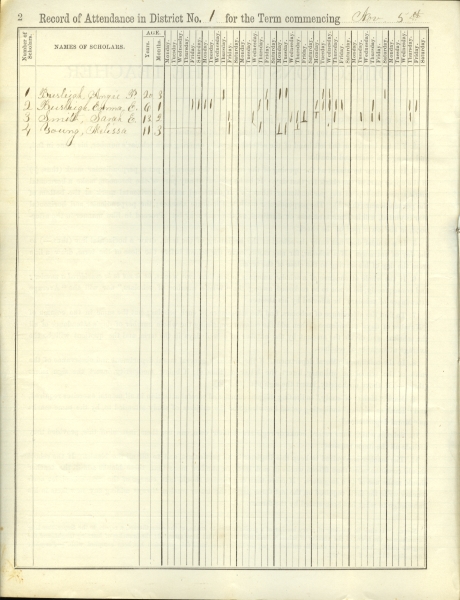 12 Record of Attendance in District No. 1 for the Term commencing Nov 5th
Number of Scholars. NAMES OF SCHOLARS. AGE. Years. Months. Monday. Tuesday. Wednesday. Thursday. Friday. Saturday. Monday. Tuesday. Wednesday. Thursday. Friday. Saturday. Monday. Tuesday. Wednesday. Thursday. Friday. Saturday. Monday. Tuesday. Wednesday. Thursday. Friday. Saturday. Monday. Tuesday. Wednesday. Thursday. Friday. Saturday. Monday. Tuesday. Wednesday. Thursday. Friday. Saturday. Monday. Tuesday. Wednesday. Thursday. Friday. Saturday.
1 Burleigh, Annie P. 20 3
2 Burleigh, Emma E. 6 1
3 Smith, Sarah E. 12 2
4 Young, Melissa 11 3